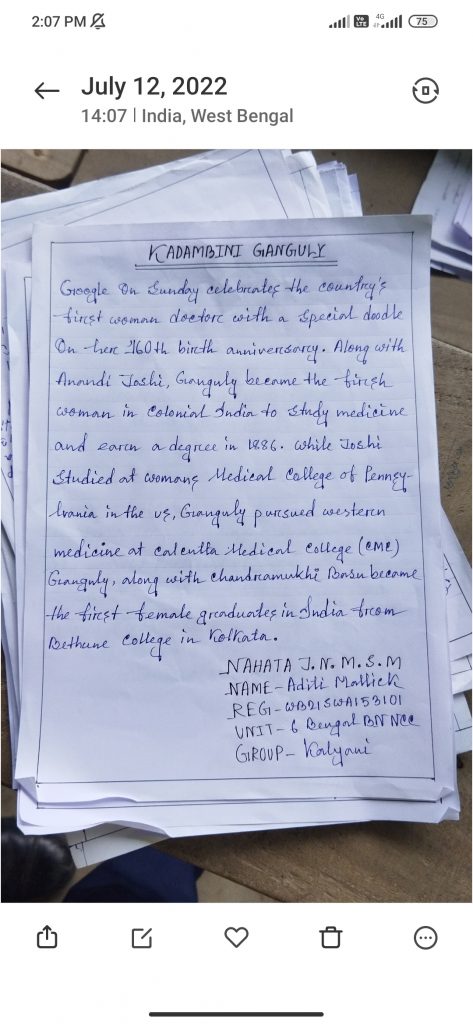 2:07 PM
4G
Vo LTE
75
July 12, 2022
14:07 | India, West Bengal
KADAMBINI GANGULY
Google On Sunday celebrates the country's
first woman doctor with a special doodle
On her 160th birth anniversary. Along with
Anandi Joshi, Ganguly became the firsh
woman in Colonial India to study medicine
and earn a degree in 1886. While Joshi
Studied at womans Medical College of Pennsy-
lvania in the us, Ganguly pursued western
medicine at calcutta Medical College (CMC)
Ganguly, along with chandramukhi Basu became
the first female graduates in India from
Bethune College in Kolkata.
NAHATA J.N.M.S.M
NAME - Aditi Mallick
REG - WB21SWA153101
UNIT - 6 Bengal BN NCC
GROUP - Kalyani